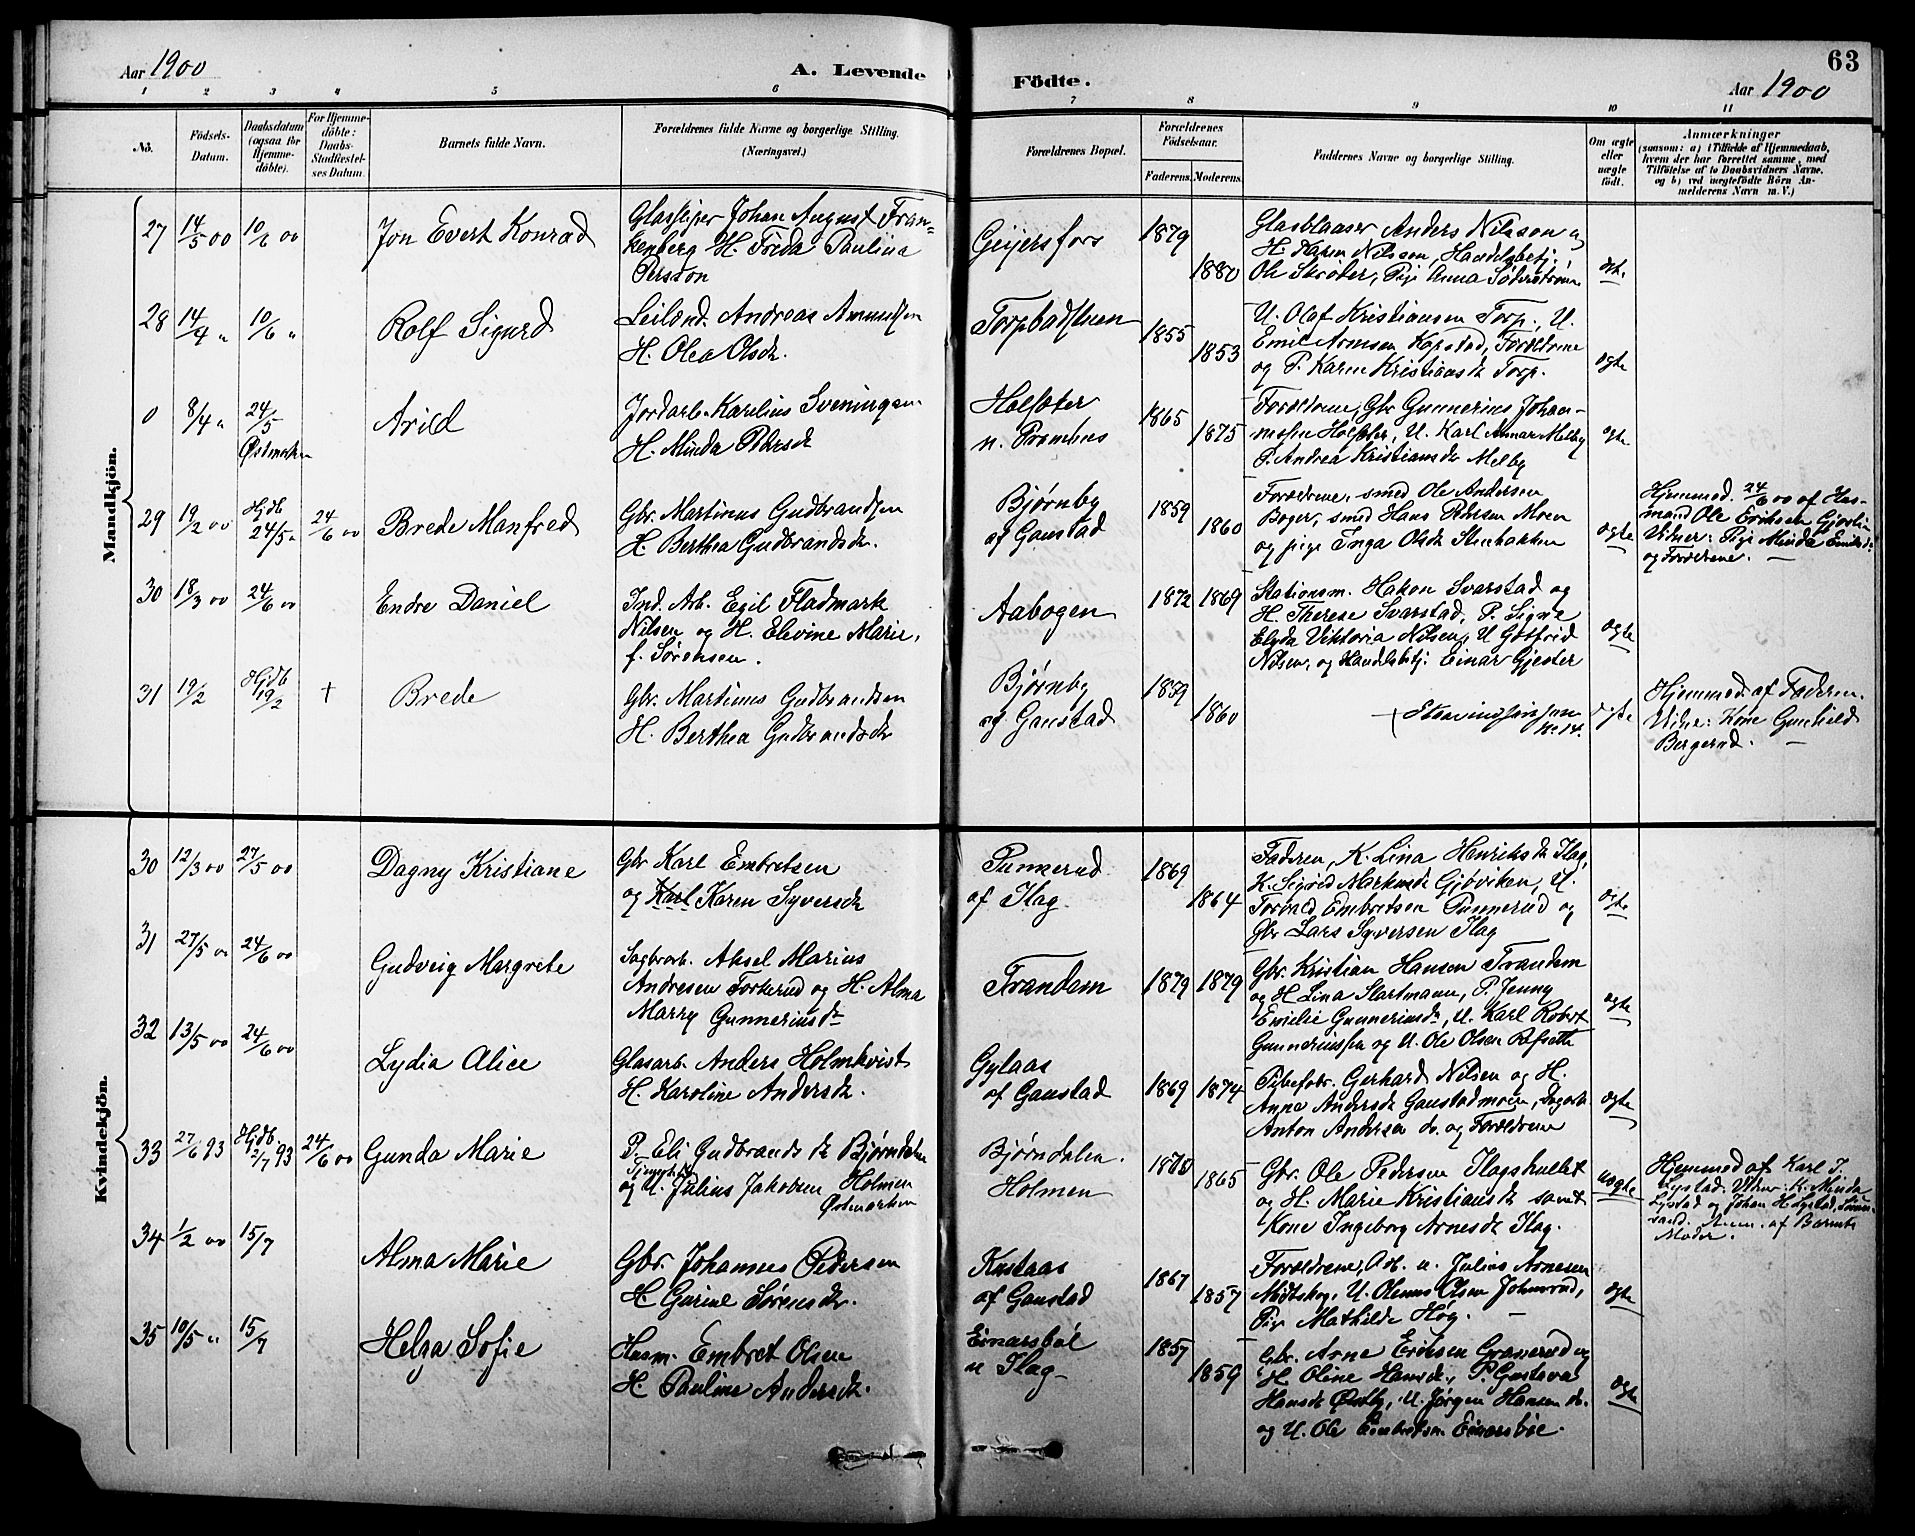 Aar 1900
A. Levende
Födte.
Aar 1900
63
1 2 3 4 5 6 7 8 9 10 11
No.
Födsels-
Datum.
Daabsdatum
(ogsaa for
Hjemme-
döbte).
For Hjemme-
döbte:
Daabs-
Stadfæstel-
ses Datum.
Barnets fulde Navn.
Forældrenes fulde Navne og borgerlige Stilling.
(Næringsvei.)
Forældrenes Bopæl.
Forældrenes
Födselsaar.
Faderens. Moderens.
Faddernes Navne og borgerlige Stilling.
Om ægte
eller
uægte
födt.
Anmærkninger
(saasom: a) i Tilfælde af Hjemmedaab,
hvem der har forrettet samme, med
Tilföielse af to Daabsvidners Navne,
og b) ved uægtefödte Börn An-
melderens Navn m. V.)
Mandkjön.
27
14/5 00
10/6 00
Jon Evert Konrad
Glassliper Johan August Fran-
kenberg H. Frida Paulina
Persson
Geijersfors
1879
1880
Glasblaaser Anders Nilsson og
H. Karen Nilsson, Handelsbetj.
Ole Skrøber, Pige Anna Söderström
ægte
28
14/4 "
10/6 "
Rolf Sigurd
Leilænd. Andreas Amundsen
H. Olea Olsdr.
Torpbadstuen
1855
1853
U. Olaf Kristiansen Torp, U.
Emil Arnesen Kopstad, Forældrene
og P. Karen Kristiansdr Torp.
ægte
0
8/4 "
24/5
Østmarken
Arild
Jordarb. Karelius Sveningsen
H. Minda Pedersdr
Holsæter
n.
1865
1875
Forældrene, Gbr Gunnerius Johan-
nesen Holsæter, U. Karl Annar Melby
P. Andrea Kristiansdr Melby
ægte
29
19/2 00
Hjdb
24/5 "
24/6 00
Brede Manfred
Gbr. Martinus Gudbrandsen
H. Berthea Gudbrandsdr.
Bjørnby
af Gaustad
1859
1860
Forældrene, smed Ole Andersen
Boger, smed Hans Pedersen Moen
og pige Inga Olsdr Stenbakken
ægte
Hjemmed. 24/6 00 af Hus-
mand Ole Eriksen
Vidner: Pige Minda
og Forældrene. —
30
18/3 00
24/6 00
Endre Daniel
Ind. Arb. Egil Fladmark
Nilsen og H. Elevine Marie,
f. Sørensen.
Aabogen
1872 1869
Stationsm. Hakon Svarstad og
H. Therese Svarstad, P. Signe
Elyda Viktoria Nilsen, U Gotfrid
Nilsen, og Handelsbetj. Einar Gjester
ægte
31
19/2
Hjdb
19/2
+
Brede
Gbr. Martinus Gudbrandsen
H. Berthea Gudbrandsdr
Bjørnby
af Gaustad
1859
1860
No 14.
ægte
Hjemmed. af Faderen.
Vidne: Kone Gunhild
Bergerud. —
Kvindekjön.
30
12/3 00
27/5 00
Dagny Kristiane
Gbr Karl Embretsen
og Karl Karen Syversdr
Punnerud
af Hag.
1869
1864
Faderen, K. Lina Henriksdr Hag,
K. Sigrid Markusdr Gjøviken, U.
Torvald Embretsen Punnerud og
Gbr Lars Syversen Hag
ægte
31
27/5 00
24/6 00
Gudveig Margrete
Sagbrarb. Aksel Marius
Andresen Torkerud og H. Alma
Marry Gunneriusdr
Trandem
1879 1879
Gbr. Kristian Hansen Trandem
og H Lina Startmann, P. Jenny
Emelie Gunneriusdr, U. Karl Robert
Gunneriussen og U. Ole Olsen Refsæth
ægte
32
13/5 00
24/6 00
Lydia Alice
Glasarb. Anders Holmkvist
H. Karoline Andersdr.
Gylaas
af Gaustad
1869 1874
Pibefabr. Gerhard Nilsen og H.
Anne Andersdr Gaustadmoen, Dagarb.
Anton Andersen do. og Forældrene
ægte
33
27/6 93
Hjdb.
2/7 93
24/6 00
Gunda Marie
P. Eli Gudbrandsdr Bjørndalen
og U. Julius Jakobsen Holmen
Østmarken
Bjørndalen.
Holmen
1865
Gbr. Ole Pedersen Hagshullet
og H. Marie Kristiansdr samt
Kone Ingeborg Arnesdr Hag.
uægte
Hjemmed af Karl J.
Lystad. Vidner: K. Minda
Lystad og Johan H Lystad,
Anm. af Barnets
Moder.
34
1/2 00
15/7
Alma Marie
Gbr. Johannes Pedersen
H. Gurine Sørensdr.
Knstaas
af Gaustad
1867
1857
Forældrene, Arb. u. Julius Arnesen
Midtskog, U. Olenus Olsen Johnsrud,
Pige Mathilde Høg. —
ægte
35
10/5 "
15/7
Helga Sofie
Husm. Embret Olsen
H. Pauline Andersdr.
Einarsbøl
u Hag
1857
1859
Gbr. Arne Eriksen Granerud og
H Oline Hansdr, P. Gustava
Hansdr Østby, U. Jørgen Hansen do.
og U. Ole Embretsen Einarsbøl.
ægte